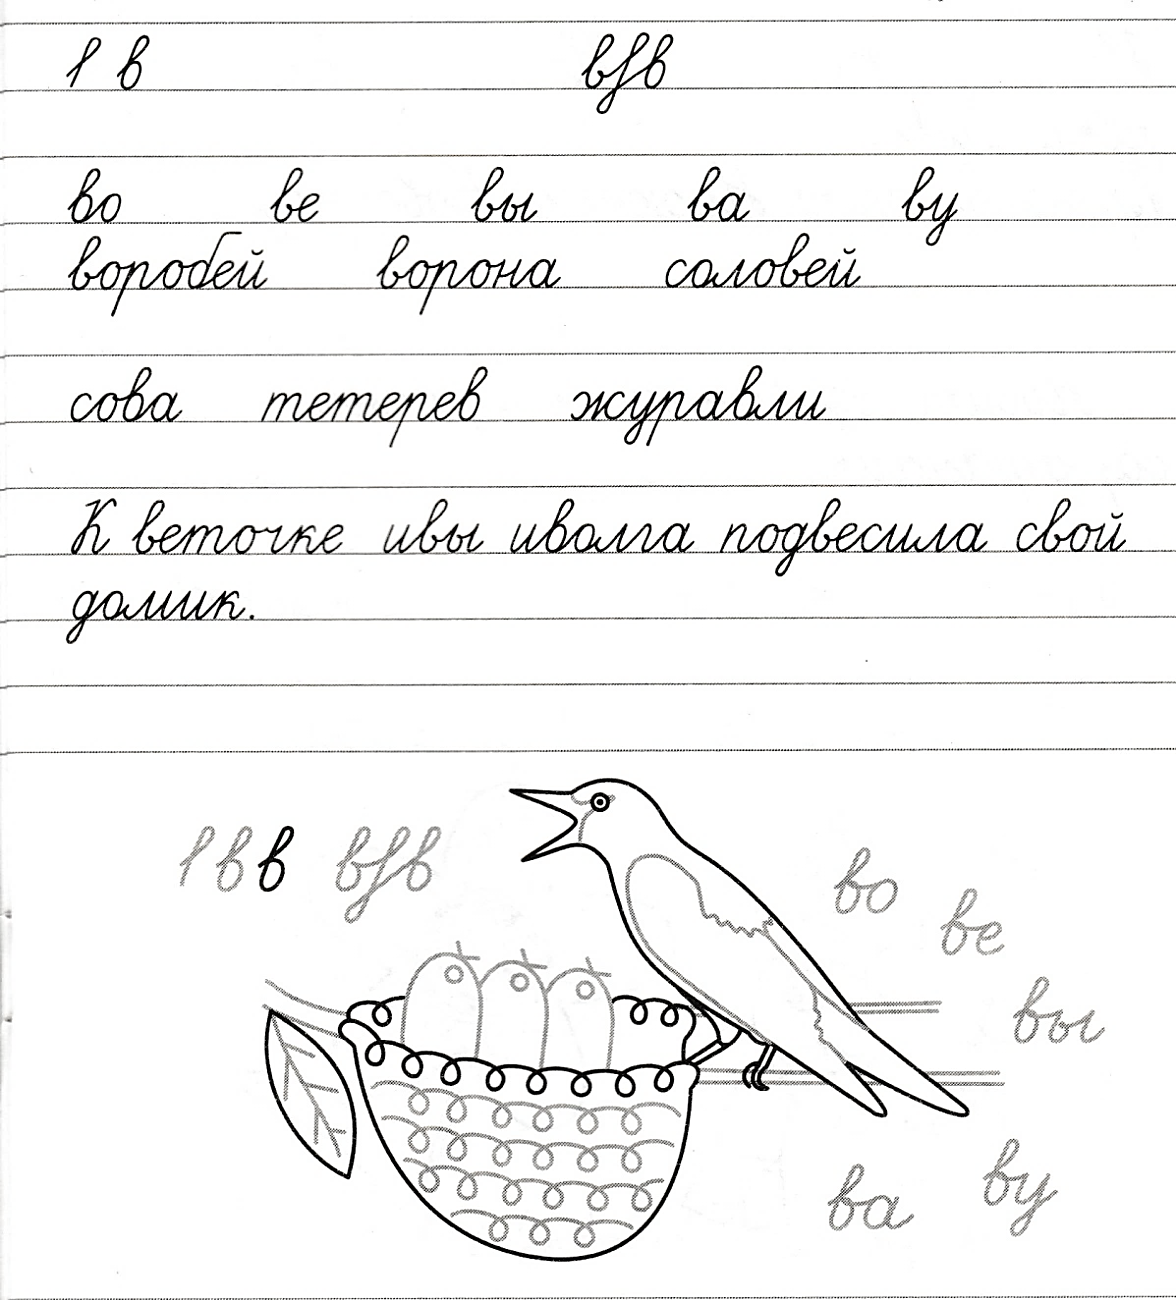 в ввв
во ве вы ва ву
воробей ворона соловей
сова тетерев журавли
К веточке ивы иволга подвесила свой
домик.
в в ввв
во
ве
вы
ву
ва